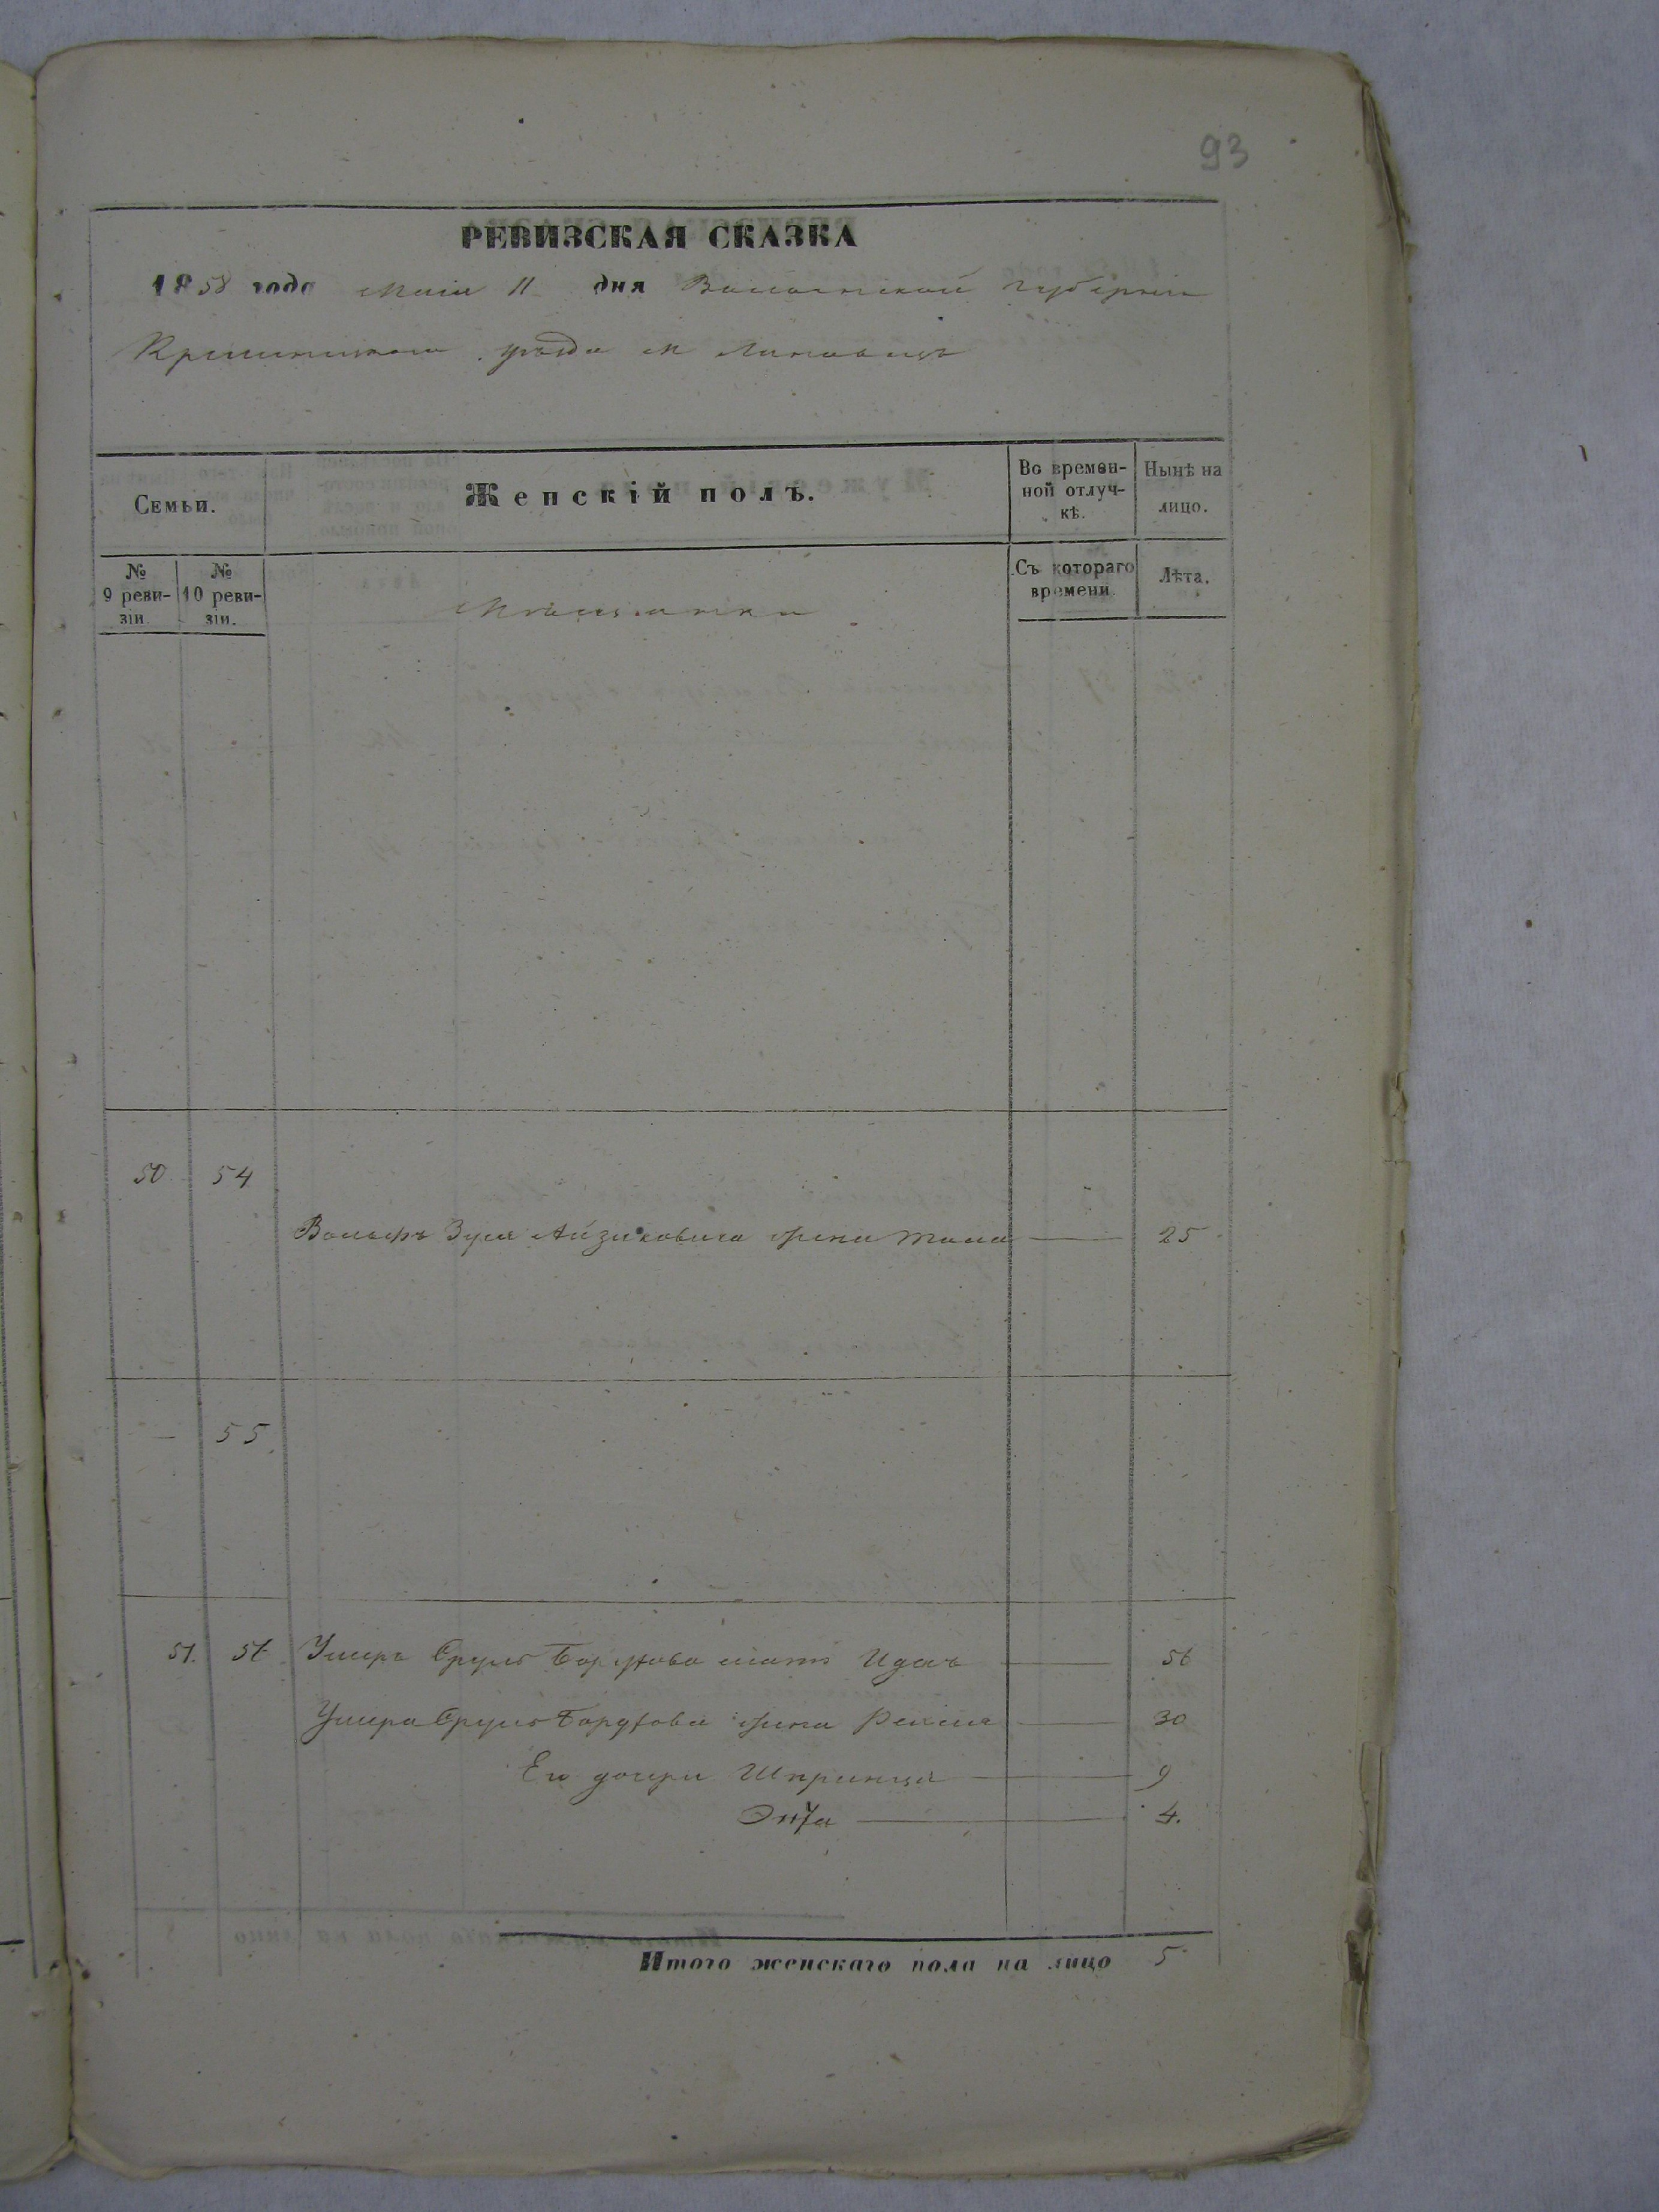 93
РЕВИЗСКАЯ СКАЗКА
1858 года Маія 11 дня Волынской губерніи
Кременецкаго уѣзда М Лановецъ
Семьи.
Женскій полъ.
Во времен-
ной отлуч-
кѣ.
Нынѣ на
лицо.
№
9 реви-
зіи
№
10 реви-
зіи.
Мѣщанки
Съ котораго
времени
Лѣта.
50 54
Вольфъ Зуся Айзиковича жена 25
— 55
51. 56 Умера Сруль Борухова мать 56
Умера Сруль Борухова жена 30
Его дочери Шпринца 9
Энта 4.
Итого женскаго пола на лицо 5